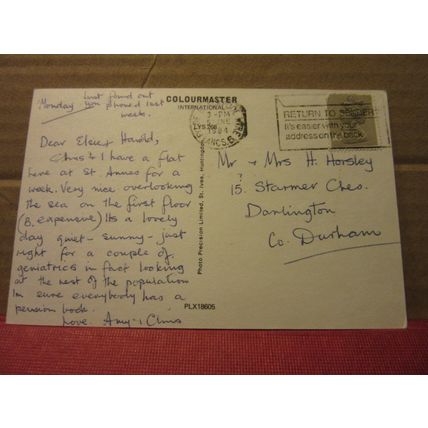 Just found out
Monday you phoned last
week.
Dear Elsie & Harold,
Chris & I have a flat
here at St. Annes for a
week. Very nice overlooking
the sea on the first floor
(B. expensive) Its a lovely
day quiet - sunny - just
right for a couple of
geniatrics in fact looking
at the rest of the population
Im sure everybody has a
pension book.
Love. Amy & Chris
COLOURMASTER
INTERNATIONAL
Photo Precision Limited, St. Ives, Huntingdon
PLX18605
3-PM
1984
LANCS.
RETURN TO SENDER
It's easier with your
address on the back
Mr & Mrs H. Horsley
15. Starmer Cres.
Darlington
Co. Durham